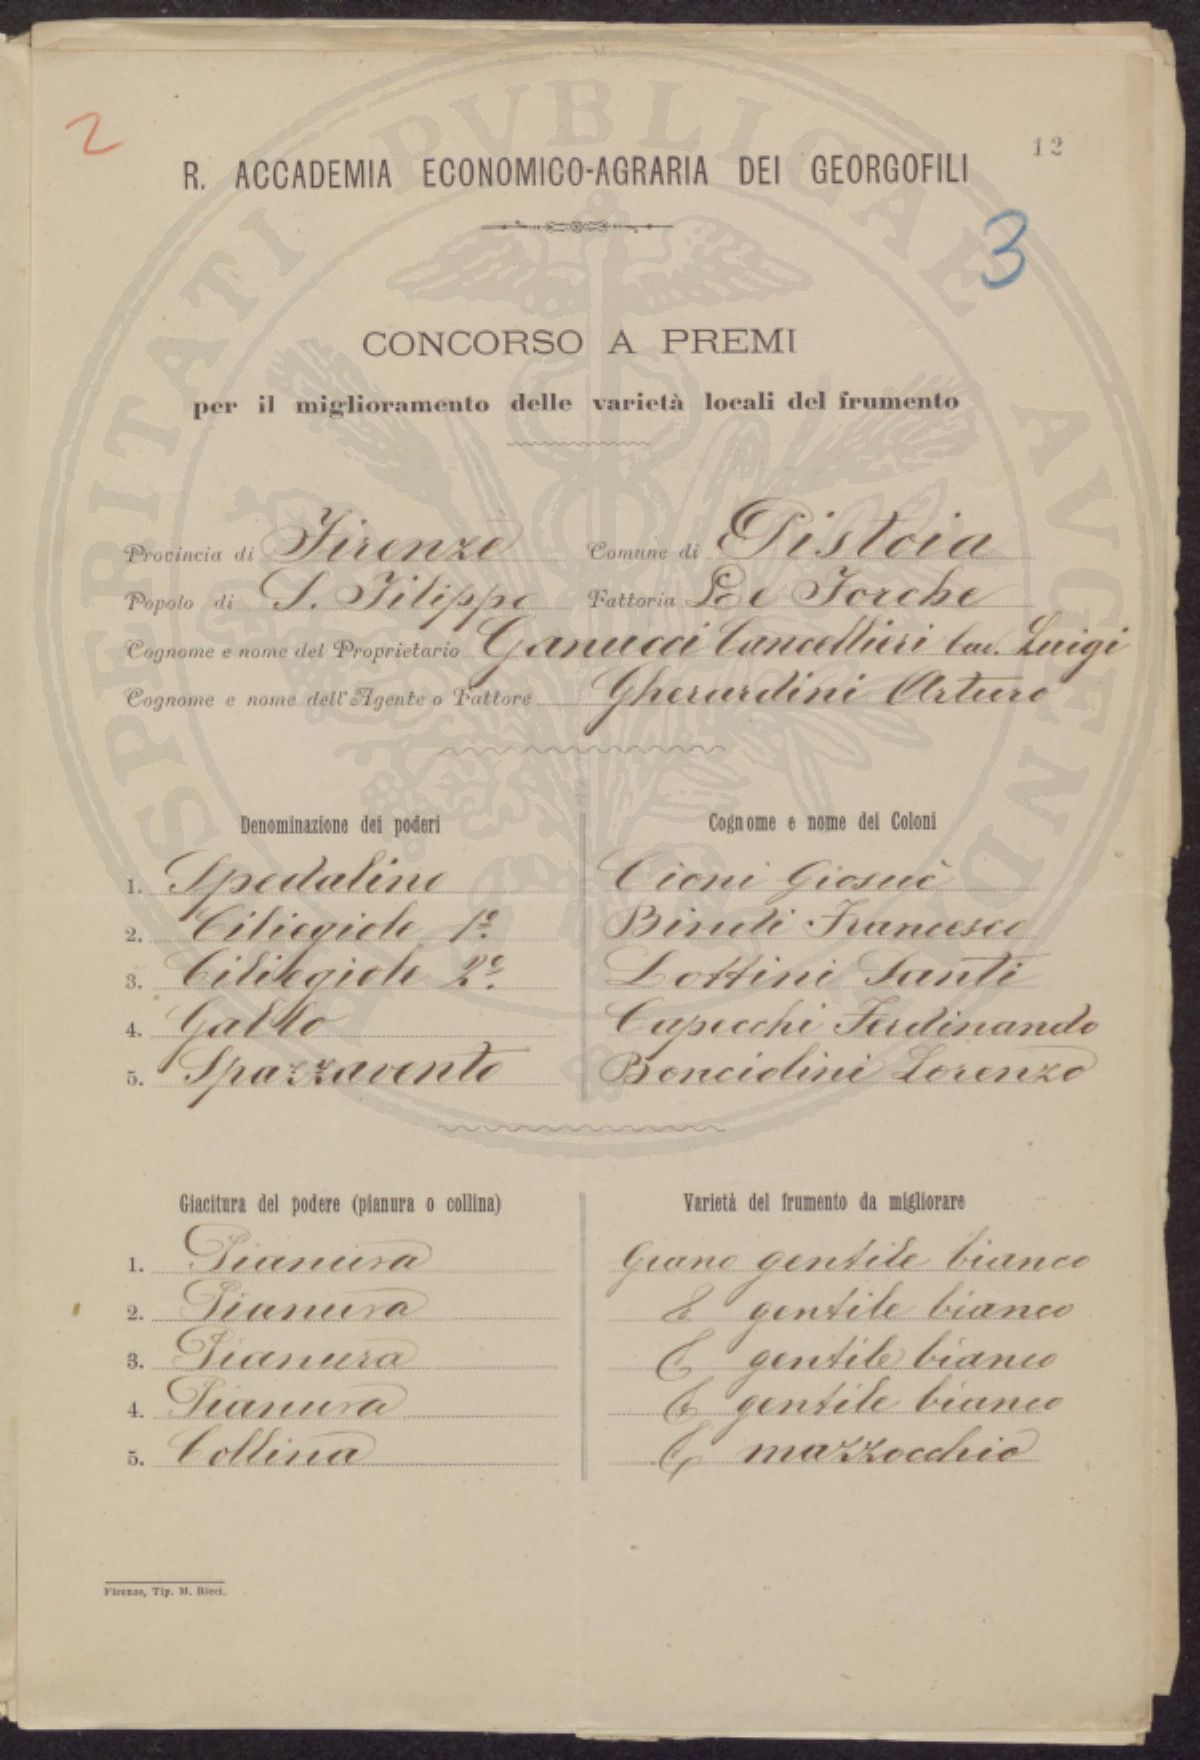 2
12
R. ACCADEMIA ECONOMICO-AGRARIA DEI GEORGOFILI
3
CONCORSO A PREMI
per il miglioramento delle varietà locali del frumento
Provincia di Firenze Comune di Pistoia
Popolo di S. Filippo Fattoria Le Forche
Cognome e nome del Proprietario Ganucci Cancellieri Cav. Luigi
Cognome e nome dell'Agente o Fattore Gherardini Arturo
Denominazione dei poderi Cognome e nome dei Coloni
1. Spedalino Cioni Giosuè
2. Ciliegiole 1º. Bindi Francesco
3. Ciliegiole 2º. Lottini Santi
4. Gallo Capecchi Ferdinando
5. Spazzavento Boncidini Lorenzo
Giacitura del podere (pianura o collina) Varietà del frumento da migliorare
1. Pianura Grano gentile bianco
2. Pianura gentile bianco
3. Pianura gentile bianco
4. Pianura gentile bianco
5. Collina mazzocchio
Firenze, Tip. M. Ricci.
PROSPERITATI PVBLICAE AVGENDAE